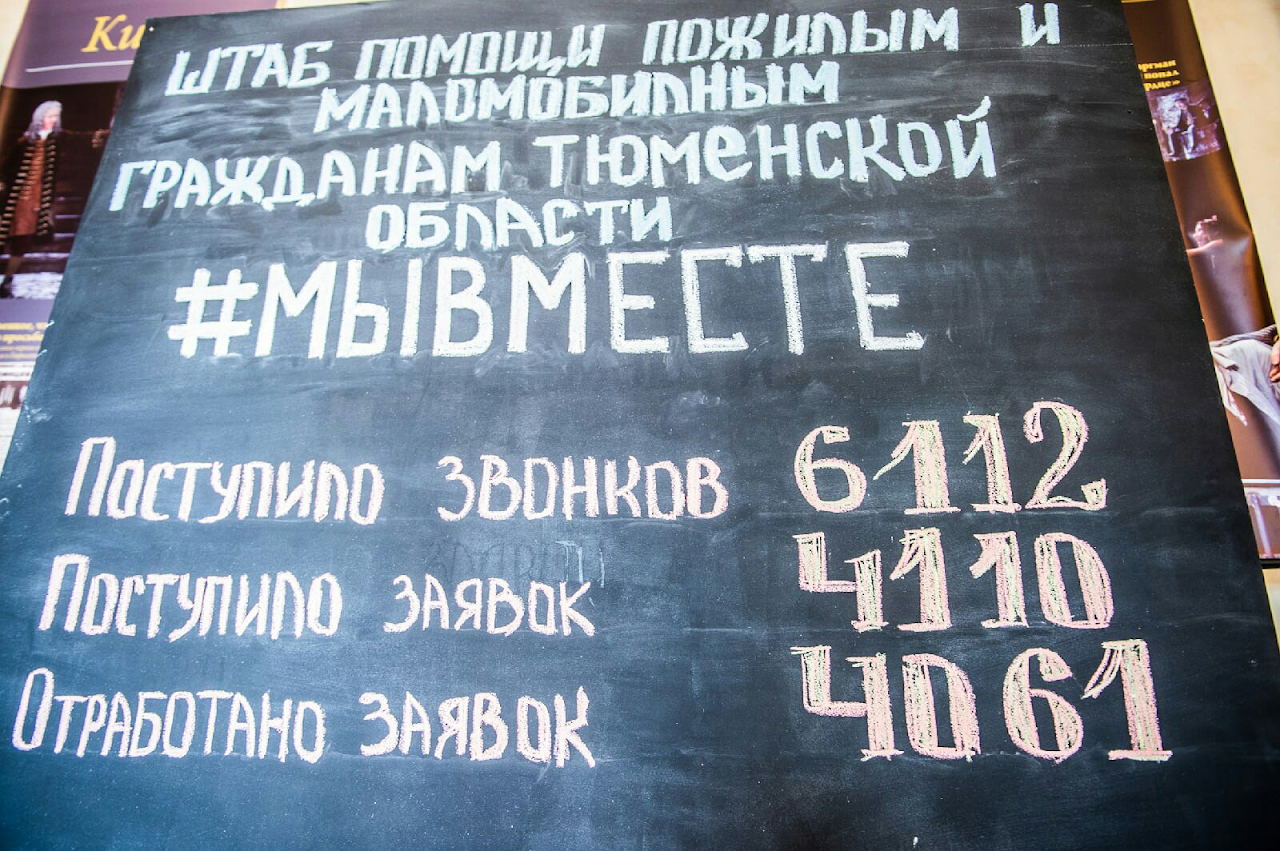 Ки
ШТАБ ПОМОЩИ ПОЖИЛЫМ И
МАЛОМОБИЛЬНЫМ
ГРАЖДАНАМ ТЮМЕНСКОЙ
ОБЛАСТИ
#МЫВМЕСТЕ
Поступило звонков 6112
Поступило заявок 4110
Отработано заявок 4061
попал